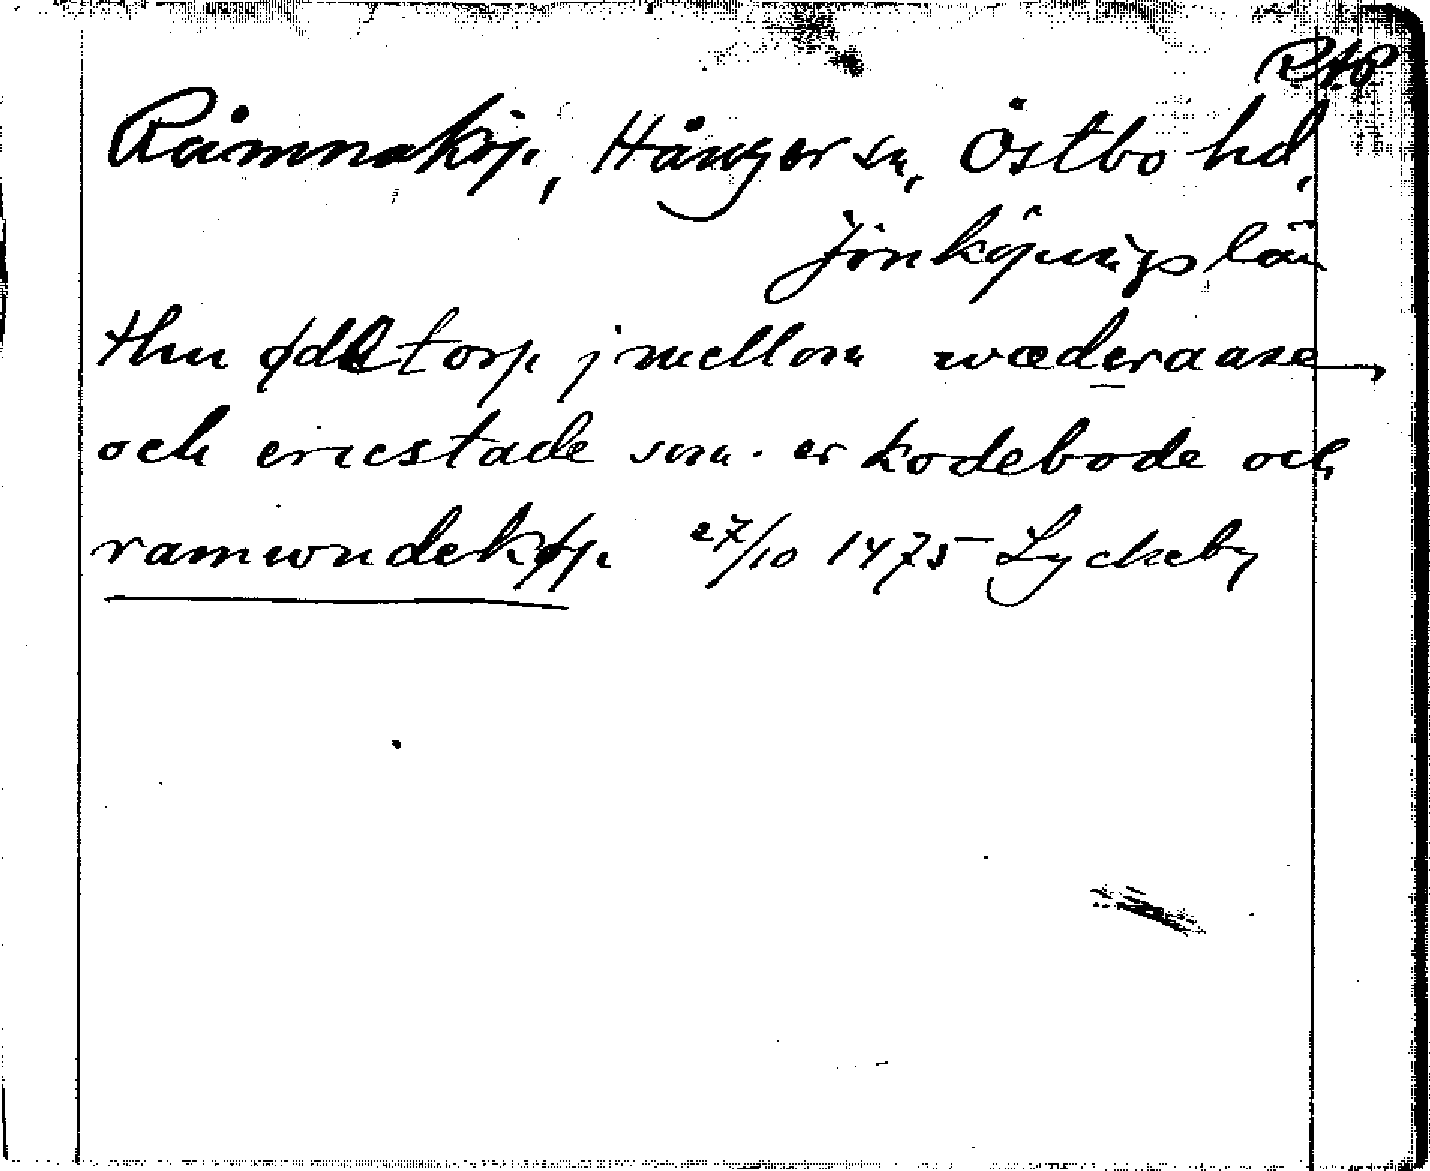 RAP
Råmnaköp, Hånger sn, Östbo hd,
Jönköpings län
thu ødetorp j mellom wæderaase
och ericstade som er kodebode och
ramwndekøp. 27/10 1475 Lyckeby